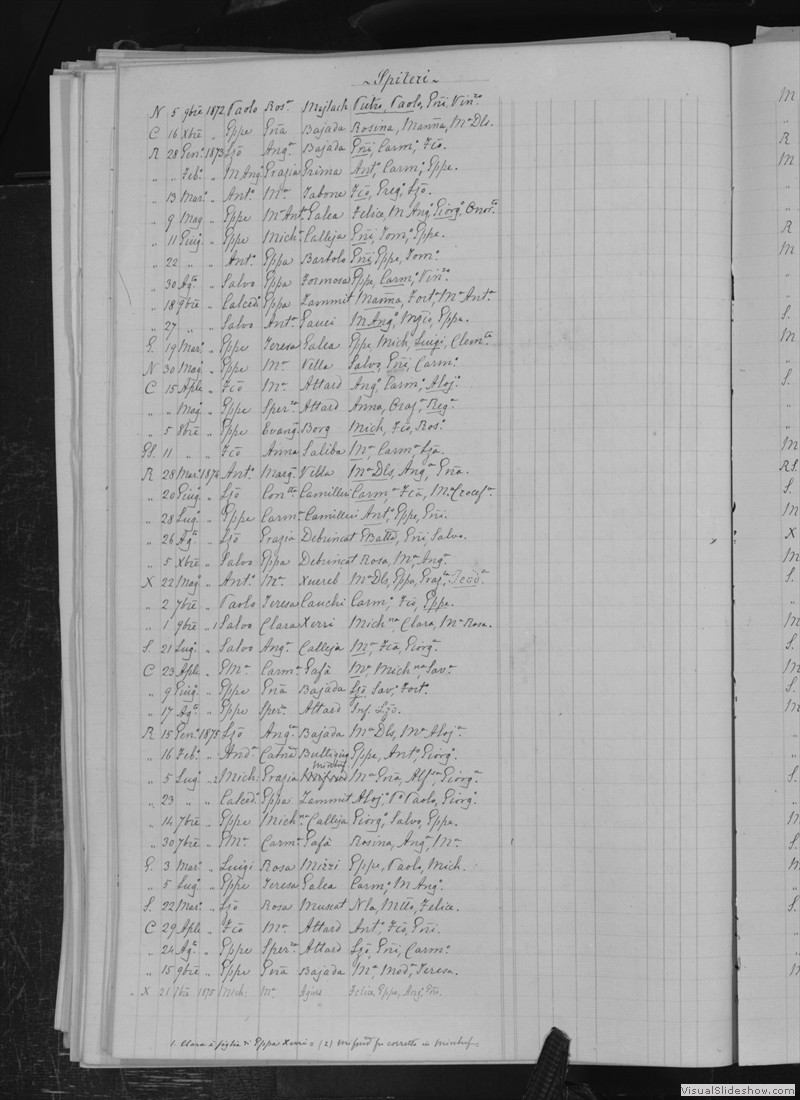 ~ Spiteri ~
N 5 9bre 1872 Paolo Ros.a Mejlach Pietro, Paolo, Gni, Vin.zo
C 16 Xbre " Gppe Gna Bajada Rosina, Marina, Ma Dls.
R 28 Gen.o 1873 Ljo Ang.a Bajada Gni, Carm.o, Fco.
" " Feb.o " M Ang.o Grazia Grima Ant.o, Carm.o, Gppe.
" 13 Mar.o " Ant.o Ma Tabone Fco, Greg.o, Ljo.
" 9 Mag.o " Gppe Ma Ant.a Galea Felice, M Ang.o, Giorg.o, Onor.o
" 11 Giug.o " Gppe Mich.a Calleja Gni, Tom.o, Gppe.
" 22 " " Ant.o Gppa Bartolo Gni, Gppe, Tom.o
" 30 Ag.to " Salvo Gppa Formosa Gppe, Carm.o, Vin.zo
" 18 9bre " Calced.o Gppa Zammit Marina, Fort.a, Ma Ant.a
" 27 " " Salvo Ant.a Sauci M Ang.o, Gppe.
G. 19 Mar.o " Gppe Teresa Galea Gppe, Mich, Luigi, Clem.te
N 30 Mag.o " Gppe Ma Vella Salvo, Gni, Carm.o
C 15 Aple " Fco Ma Attard Ang.o, Carm.o, Aloj.o
" " Mag.o " Gppe Sper.za Attard Anna, Oraj.a, Reg.a
" 5 8bre " Gppe Evang.a Borg Mich, Fco, Ros.o
GS. 11 " " Fco Anna Saliba Ma, Carm.a, Lja.
R 28 Mar.o 1874 Ant.o Marg.a Vella Ma Dls, Ang.a, Gna.
" 20 Giug.o " Ljo Con.tta Camilleri Carm.a, Fca, Ma Crocef.a
" 28 Lug.o " Gppe Carm.a Camilleri Ant.o, Gppe, Gni.
" 26 Ag.to " Ljo Grazia Debrincat GBatta, Gni, Salvo.
" 5 Xbre " Salvo Gppa Debrincat Rosa, Ma, Ang.a
X 22 Mag.o " Ant.o Ma Xuereb Ma Dls, Gppa, Graz.a, Teod.a
" 2 7bre " Paolo Teresa Cauchi Carm.o, Fco, Gppe.
" 1 9bre " 1 Salvo Clara Xerri Mich.na, Clara, Ma Rosa.
S. 21 Lug.o " Salvo Ang.a Calleja Ma, Fca, Giorg.a
C 23 Aple " GMa Carm.a Gafà Ma, Mich.na, Sav.a
" 9 Giug.o " Gppe Gna Bajada Ljo, Sav.o, Fort.
" 17 Ag.to " Gppe Sper.a Attard Inf. Ljo.
R 15 Gen.o 1875 Ljo Ang.a Bajada Ma Dls, Ma Aloj.a
" 16 Feb.o " And.a Catna Gppe, Ant.o, Giorg.o
Minchef
" 5 Lug.o " 2 Mich. Grazia Ma Gna, Alf.sa, Giorg.a
" 23 " " Calced.o Gppa Zammit Aloj.o, Po Paolo, Giorg.o
" 14 7bre " Gppe Mich.na Calleja Giorg.o, Salvo, Gppe.
" 30 7bre " GMa Carm.a Gafà Rosina, Ang.a, Ma
G. 3 Mar.o " Luigi Rosa Mizzi Gppe, Paolo, Mich.
" 5 Lug.o " Gppe Teresa Galea Carm.o, M Ang.o
S. 22 Mar.o " Ljo Rosa Muscat Nla, Mtteo, Felice.
C 29 Aple " Fco Ma Attard Ant.o, Fco, Gni.
" 24 Ag.to " Gppe Sper.za Attard Ljo, Gni, Carm.o
" 15 9bre " Gppe Gna Bajada Ma, Mad.a, Teresa.
X 21 7bre 1875 Mich. Ma Agius Felice, Gppe, Ang.o
1. Clara è figlia di Gppa Xerri = (2) fu corretto in Minchef
VisualSlideshow.com